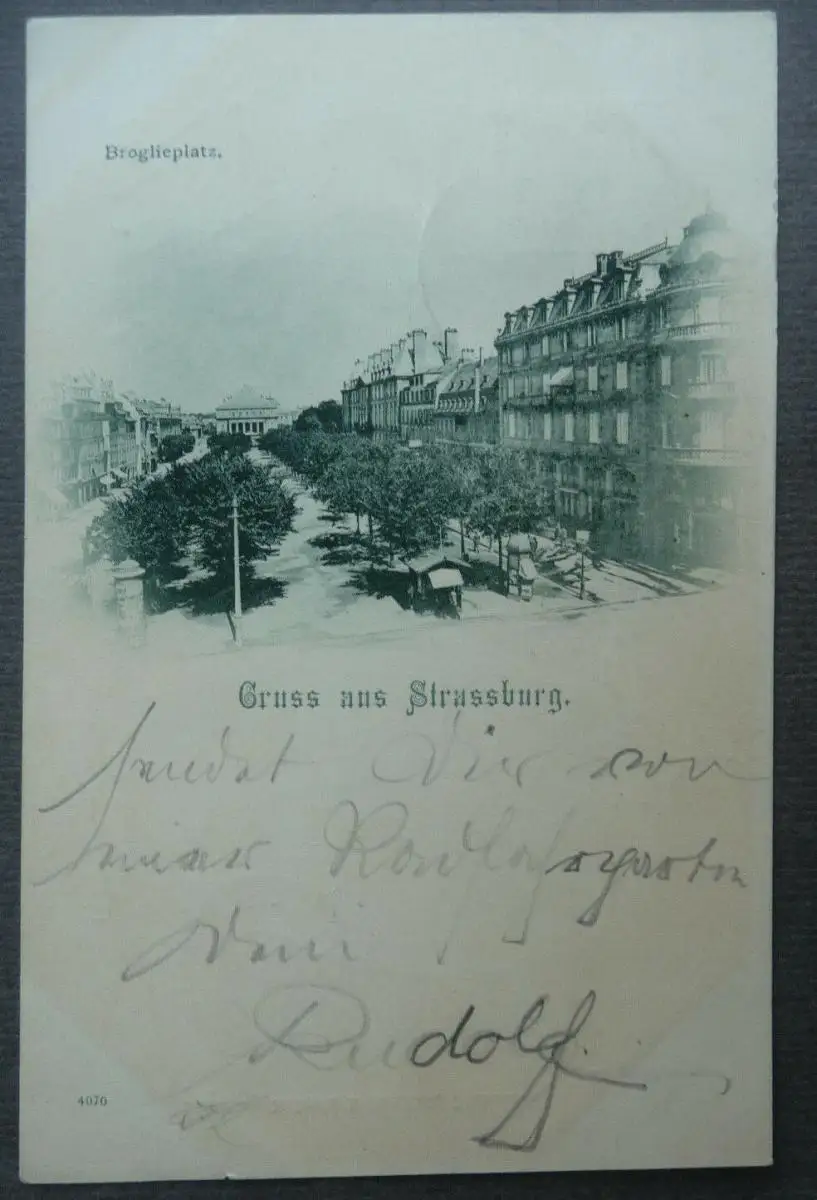 Broglieplatz.
Gruss aus Strassburg.
sendet Dir von
seiner
Dein
Rudolf.
4070